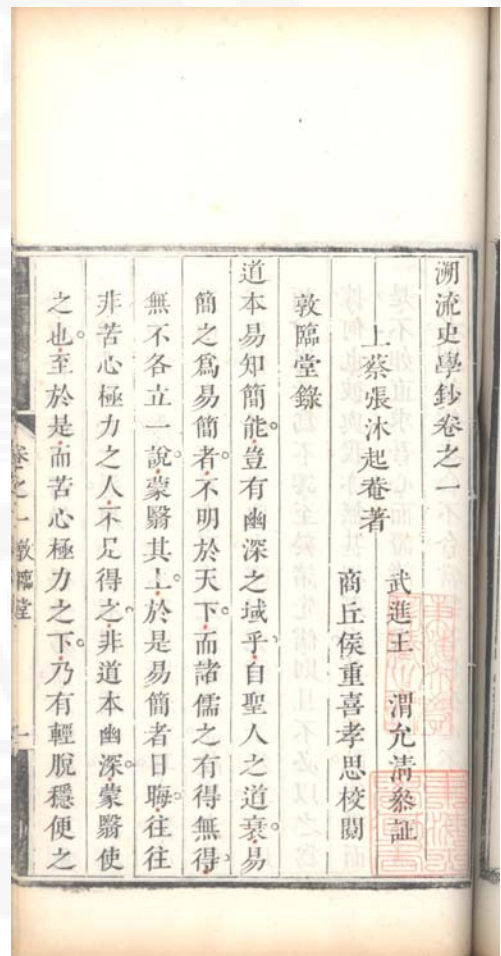 溯流史學鈔卷之一
上蔡張沐起菴著
武進王 渭允淸叅証
商丘侯重喜孝思校閱
敦臨堂錄
道本易知簡能。豈有幽深之域乎、自聖人之道衰。易
簡之爲易簡者。不明於天下。而諸儒之有得無得、
無不各立一說。蒙翳其上。於是易簡者日晦。往往
非苦心極力之人不足得之。非道本幽深。蒙翳使
之也。至於是而苦心極力之下。乃有輕脫穩便之
卷之一敦臨堂
一